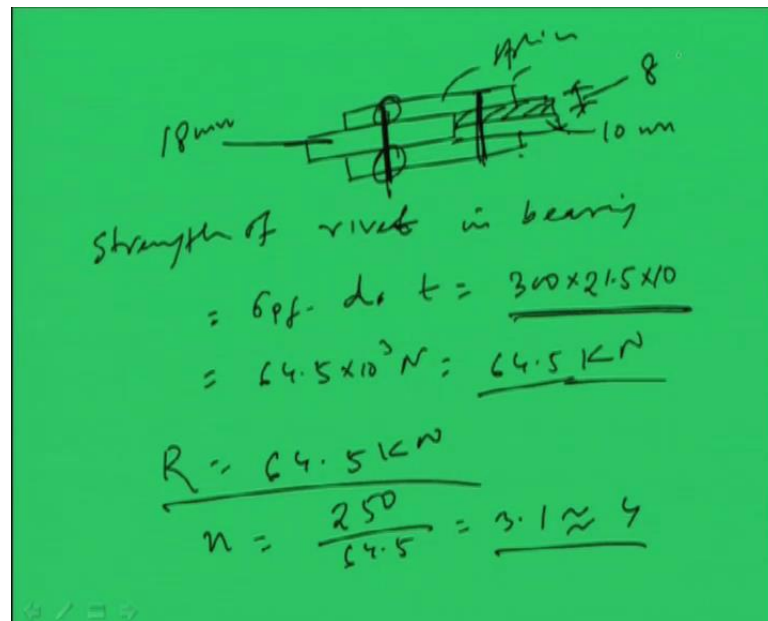 8
18mm
10 mm
Strength of rivet in bearing
= σpf. d. t = 300×21.5×10
= 64.5×10³ N = 64.5 KN
R = 64.5 KN
n = 250/64.5 = 3.1 ≈ 4